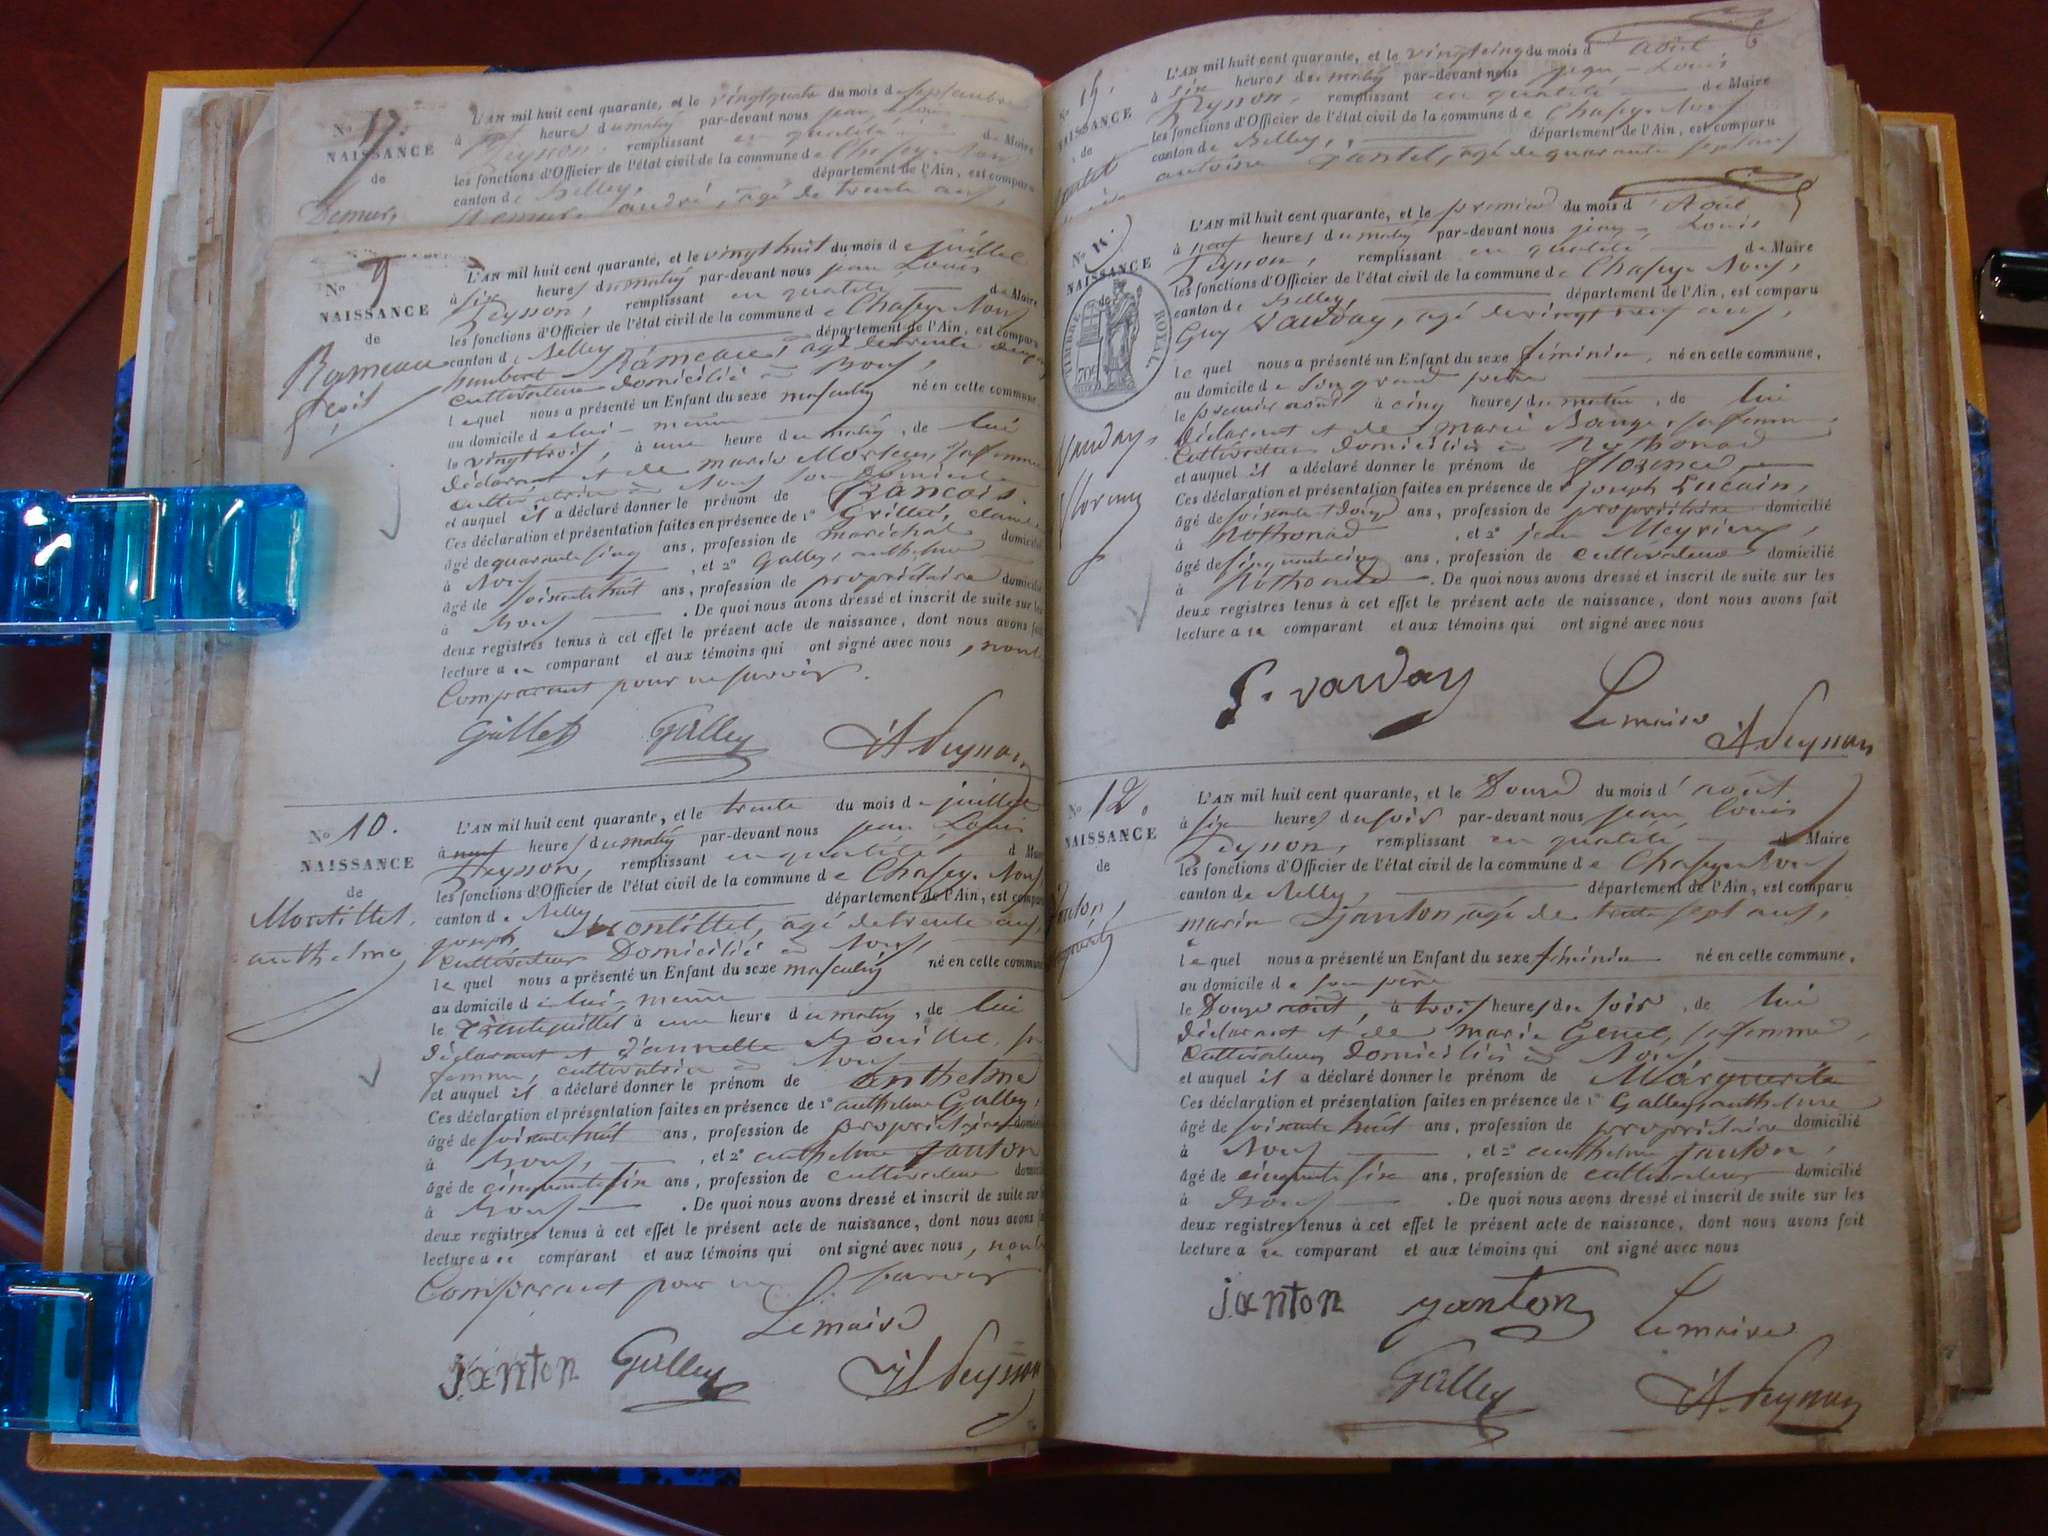 No 17.
NAISSANCE
de
Demur,
L'AN mil huit cent quarante, et le vingtquatre du mois de Septembre
à heures du matin par-devant nous jean Louis
Peysson, remplissant en qualité de Maire
les fonctions d'Officier de l'état civil de la commune de Chasey-
canton de Belley, département de l'Ain, est comparu
Demur andré, agé de trente ans,
No 9
NAISSANCE
de
Rameau
L'AN mil huit cent quarante, et le vingt huit du mois de juillet
à six heures du matin par-devant nous jean Louis
Peysson, remplissant en qualité de Maire
les fonctions d'Officier de l'état civil de la commune de Chasey-
canton de Belley département de l'Ain, est comparu
humbert Rameau, agé de trente
cultivateur domicilié à
lequel nous a présenté un Enfant du sexe masculin né en cette commune,
au domicile de lui-même
le vingttrois, à une heure du matin, de lui
déclarant et de marie sa femme
cultivatrice à son domicile
et auquel il a déclaré donner le prénom de francois.
Ces déclaration et présentation faites en présence de 1° Grillet, claude
âgé de quarante cinq ans, profession de maréchal domicilié
à , et 2° Galley, anthelme
âgé de soixante huit ans, profession de propriétaire domicilié
à . De quoi nous avons dressé et inscrit de suite sur les
deux registres tenus à cet effet le présent acte de naissance, dont nous avons fait
lecture au comparant et aux témoins qui ont signé avec nous, non le
Comparant pour ne savoir.
Grillet Galley Peysson
No 10.
NAISSANCE
de
Montillet.
anthelme
L'AN mil huit cent quarante, et le trente du mois de juillet
à neuf heures du matin par-devant nous jean Louis
Peysson, remplissant en qualité d Maire
les fonctions d'Officier de l'état civil de la commune de Chasey-
canton de Belley département de l'Ain, est comparu
joseph Montillet, agé de trente ans,
cultivateur Domicilié à
lequel nous a présenté un Enfant du sexe masculin né en cette commune
au domicile de lui-même
le trentejuillet à une heure du matin, de lui
déclarant et d'annette Bouillet, sa
femme, cultivatrice à
et auquel il a déclaré donner le prénom de anthelme
Ces déclaration et présentation faites en présence de 1° anthelme Galley,
âgé de soixante huit ans, profession de propriétaire domicilié
à , et 2° anthelme janton
âgé de cinquante six ans, profession de cultivateur domicilié
à . De quoi nous avons dressé et inscrit de suite sur les
deux registres tenus à cet effet le présent acte de naissance, dont nous avons fait
lecture au comparant et aux témoins qui ont signé avec nous, non le
Comparant pour ne savoir
Le maire
janton Galley Peysson
No 15.
NAISSANCE
de
L'AN mil huit cent quarante, et le vingtcinq du mois d'août
à six heures du matin par-devant nous jean-Louis
Peysson, remplissant en qualité de Maire
les fonctions d'Officier de l'état civil de la commune de Chasey-
canton de Belley, département de l'Ain, est comparu
antoine agé de quarante sept ans
No 11.
NAISSANCE
de
TIMBRE ROYAL
Vauday,
florence
L'AN mil huit cent quarante, et le premier du mois d'Août
à neuf heures du matin par-devant nous jean-Louis
Peysson, remplissant en qualité de Maire
les fonctions d'Officier de l'état civil de la commune de Chasey-
canton de Belley, département de l'Ain, est comparu
Guy Vauday, agé de vingt neuf ans,
lequel nous a présenté un Enfant du sexe féminin, né en cette commune,
au domicile de son grand père
le premier août à cinq heures du matin, de lui
déclarant et de marie sa femme
cultivateurs domiciliés à Rothonod
et auquel il a déclaré donner le prénom de florence
Ces déclaration et présentation faites en présence de 1° joseph Lucain,
âgé de soixante Douze ans, profession de propriétaire domicilié
à Rothonod , et 2° jean Meyrieux,
âgé de cinquante cinq ans, profession de cultivateur domicilié
à Rothonod . De quoi nous avons dressé et inscrit de suite sur les
deux registres tenus à cet effet le présent acte de naissance, dont nous avons fait
lecture au comparant et aux témoins qui ont signé avec nous
G. vauday Le maire Peysson
No 12.
NAISSANCE
de
janton,
L'AN mil huit cent quarante, et le Douze du mois d'août
à six heures du soir par-devant nous jean Louis
Peysson, remplissant en qualité d Maire
les fonctions d'Officier de l'état civil de la commune de Chasey-
canton de Belley, département de l'Ain, est comparu
marin janton, agé de trente sept ans,
lequel nous a présenté un Enfant du sexe féminin né en cette commune,
au domicile de son père
le Douze août, à trois heures du soir, de lui
déclarant et de marie Genet, sa femme,
cultivateurs domiciliés à
et auquel il a déclaré donner le prénom de Marguerite
Ces déclaration et présentation faites en présence de 1° Galley, anthelme
âgé de soixante huit ans, profession de propriétaire domicilié
à , et 2° anthelme janton,
âgé de cinquante six ans, profession de cultivateur domicilié
à . De quoi nous avons dressé et inscrit de suite sur les
deux registres tenus à cet effet le présent acte de naissance, dont nous avons fait
lecture au comparant et aux témoins qui ont signé avec nous
janton janton Le maire
Galley Peysson